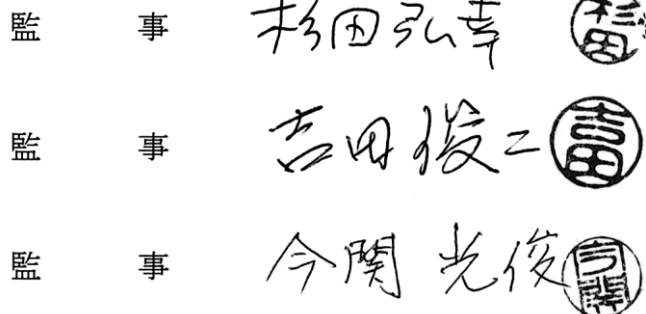 監事 杉田弘幸 杉田
監事 吉田俊二 吉田
監事 今関光俊 今関